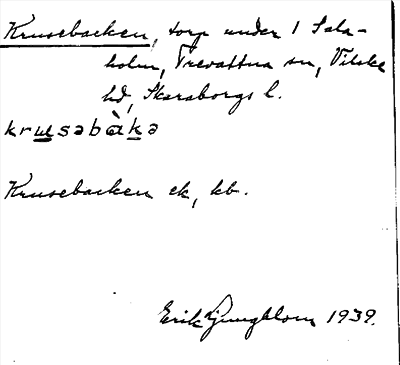 Krusebacken, torp under 1 Sala-
holm, Trevattna sn, Vilske
hd, Skaraborgs l.
krusəbàkə
Krusebacken ek, kb.
Erik Ljungblom 1939.